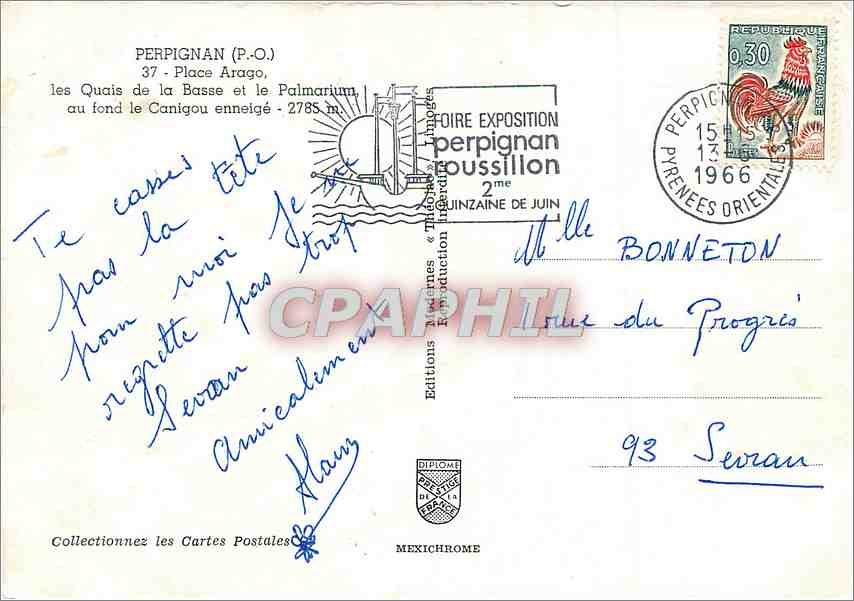 PERPIGNAN (P.-O.)
37 - Place Arago,
les Quais de la Basse et le Palmarium,
au fond le Canigou enneigé - 2785 m.
Te casses
pas la tête
pour moi Je ne
regrette pas trop
Sevran
Amicalement
Alain
Collectionnez les Cartes Postales
Editions Modernes « Théojac » Limoges
Reproduction Interdite
FOIRE EXPOSITION
perpignan
roussillon
2me
QUINZAINE DE JUIN
PERPIGN
15H
13-6
1966
PYRENEES ORIENTALES
REPUBLIQUE FRANÇAISE
0,30
Mlle BONNETON
rue du Progrès
93 Sevran
DIPLOME
PRESTIGE
DE LA
FRANCE
MEXICHROME
CPAPHIL